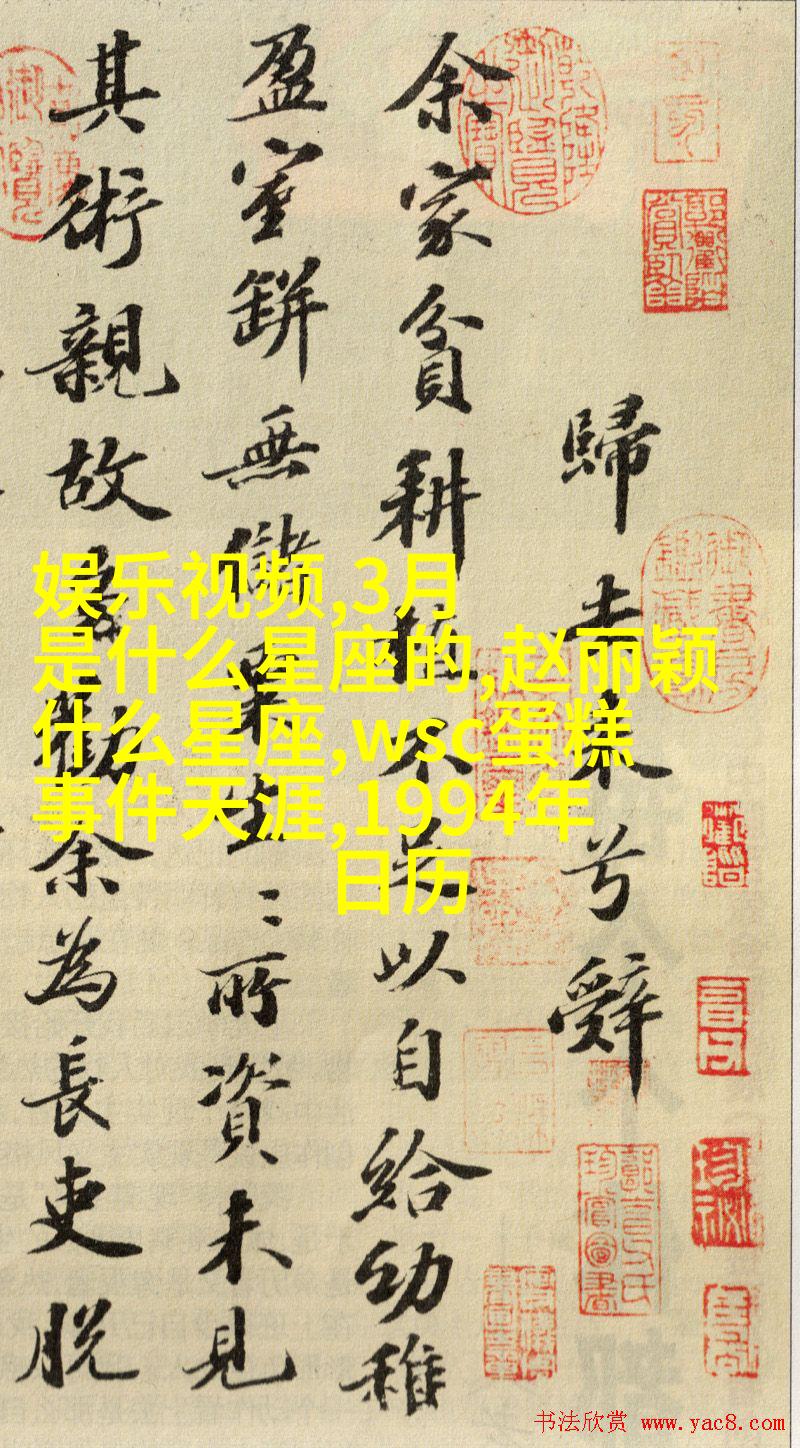 歸去来兮辭
余家貧耕植不足以自給幼稚
盈室缾無儲粟生〻所資未見
其術親故多勸余為長吏脱
娱乐视频,3月
是什么星座的,赵丽颖
什么星座,wsc蛋糕
事件天涯,1994年
日历
书法欣赏 www.yac8.com